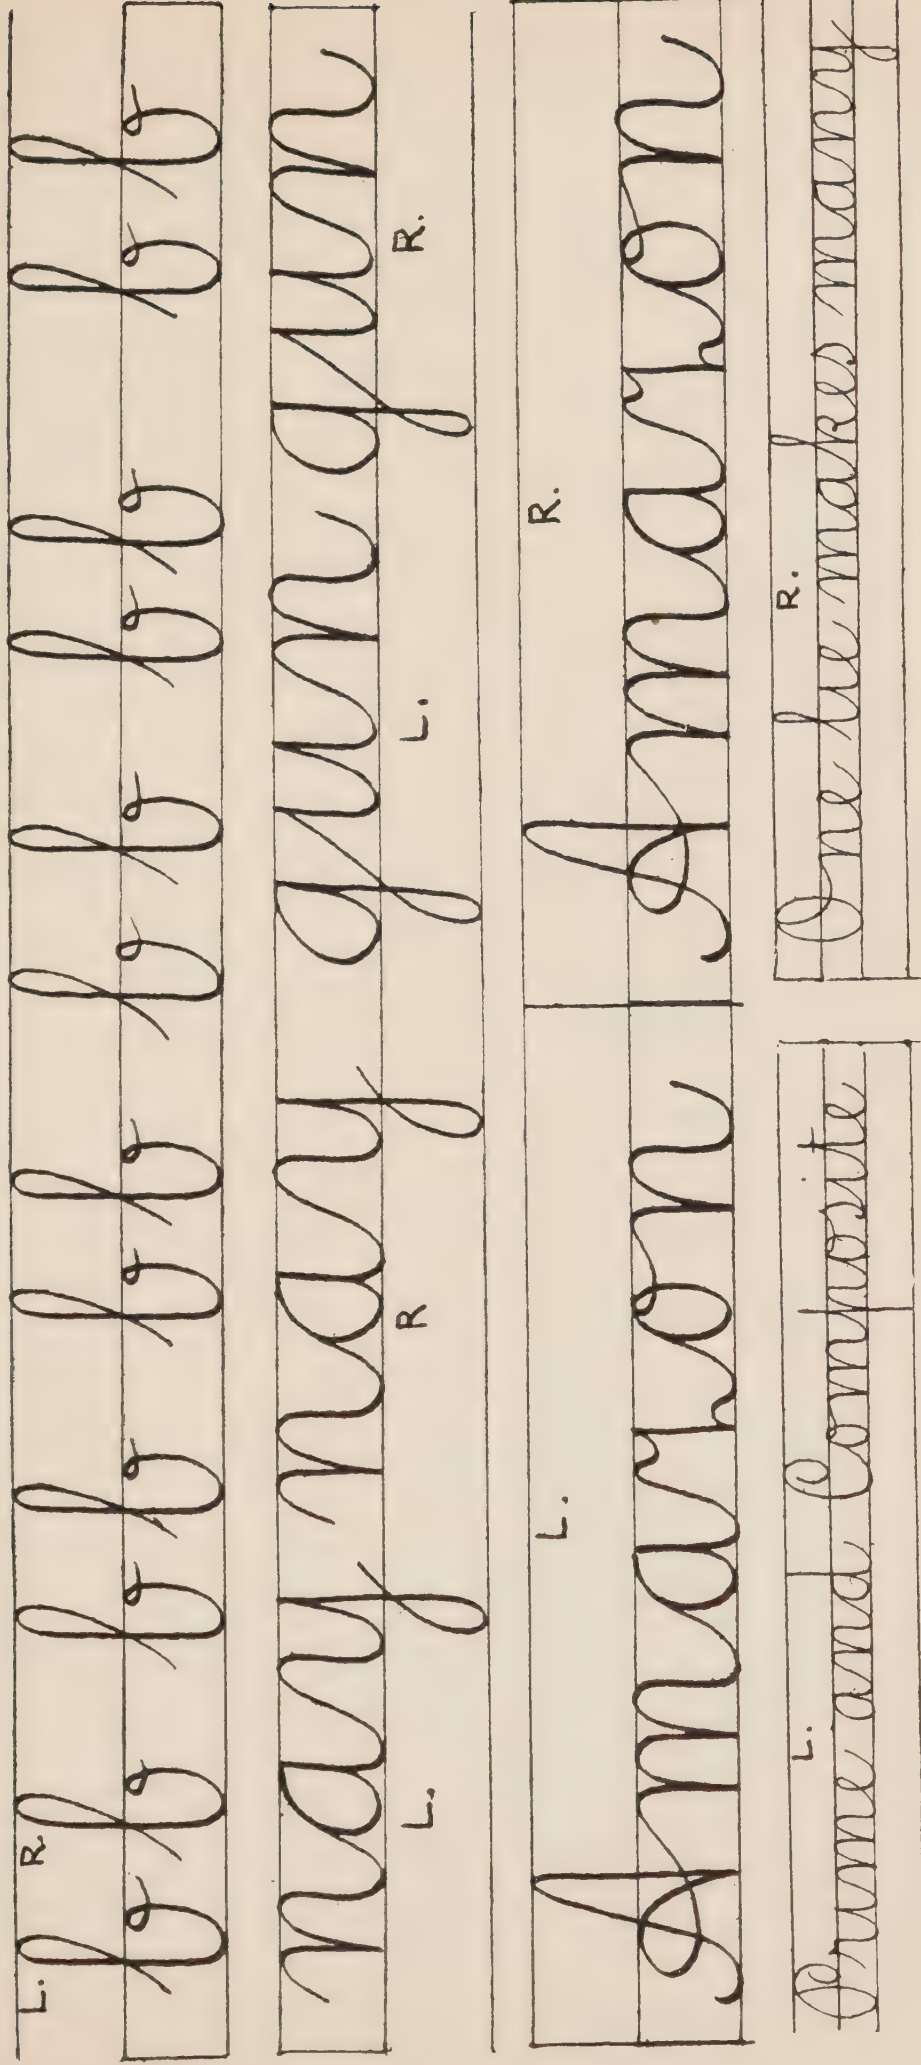 L. R.
b b b b b b b b b b b b
nay nay gun gun
L. R L. R.
L. R.
Amazon Amazon
L. R.
Prime and Composite One lie makes many